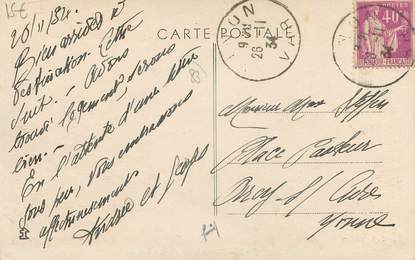 15€
26/11/34.
Bien arrivés à
destination cette
nuit. Avons
trouvé logement, serons
bien.
En l'attente d'une lettre
vous, vous embrassons
affectueusement
Andrée et
CARTE POSTALE
LYON
9
26 11
34
RHA
40
Monsieur Mme Steffen
Place Pasteur
Arcy-s/ Cure
Yonne